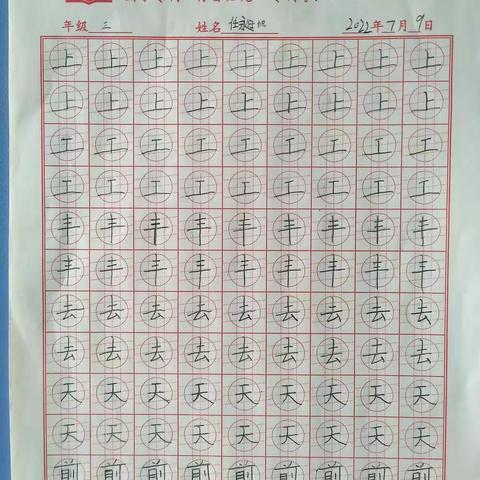 年级 三 姓名 任 2022年7月9日
上上上上上上上上上
上上上上上上上上上
工工工工工工工工工
工工工工工工工工工
丰丰丰丰丰丰丰丰丰
丰丰丰丰丰丰丰丰丰
去去去去去去去去去
去去去去去去去去去
天天天天天天天天天
天天天天天天天天天
前前前前前前前前前